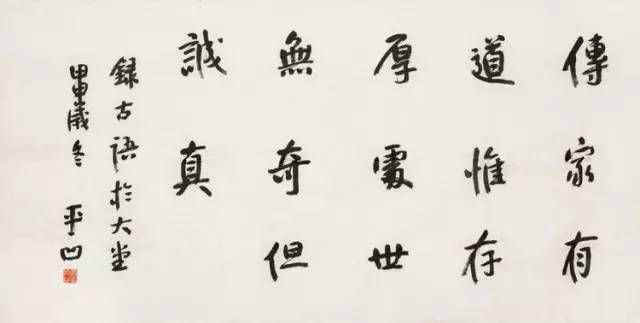 傳家有
道惟存
厚處世
無奇但
誠真
錄古語於大堂
甲申歲冬 平凹